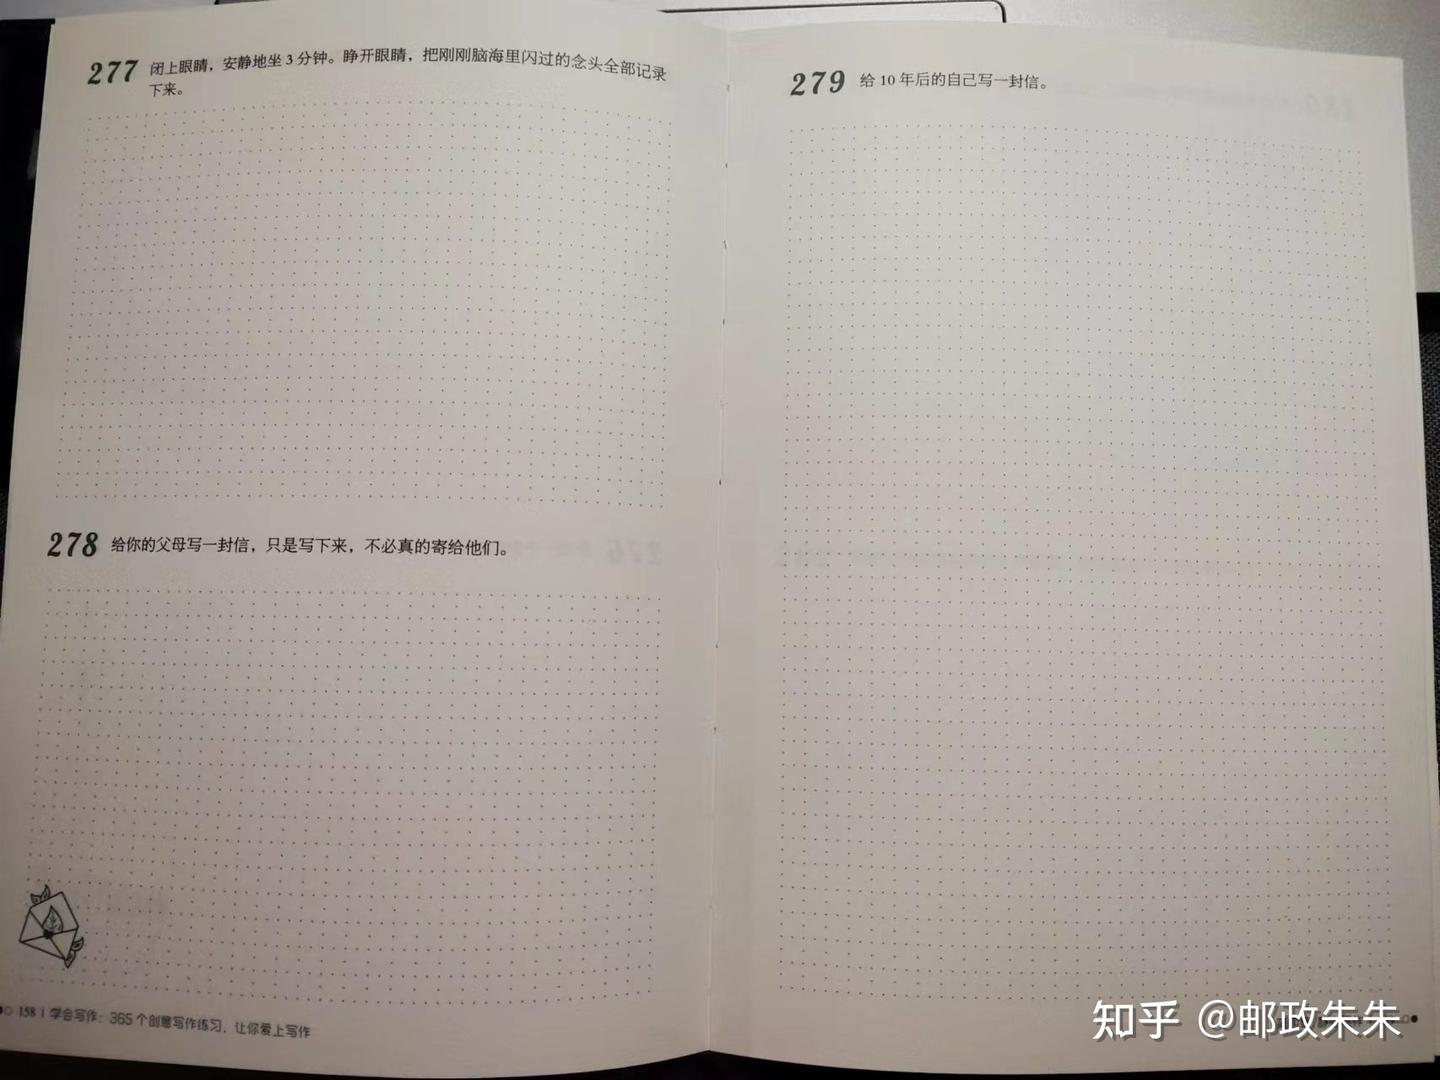 277 闭上眼睛，安静地坐 3 分钟。睁开眼睛，把刚刚脑海里闪过的念头全部记录
下来。
278 给你的父母写一封信，只是写下来，不必真的寄给他们。
158 | 学会写作：365 个创意写作练习，让你爱上写作
279 给 10 年后的自己写一封信。
知乎 @邮政朱朱